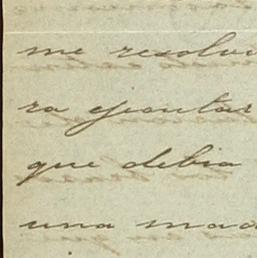 me resolvi
ra ejecutar
que debia
una mad